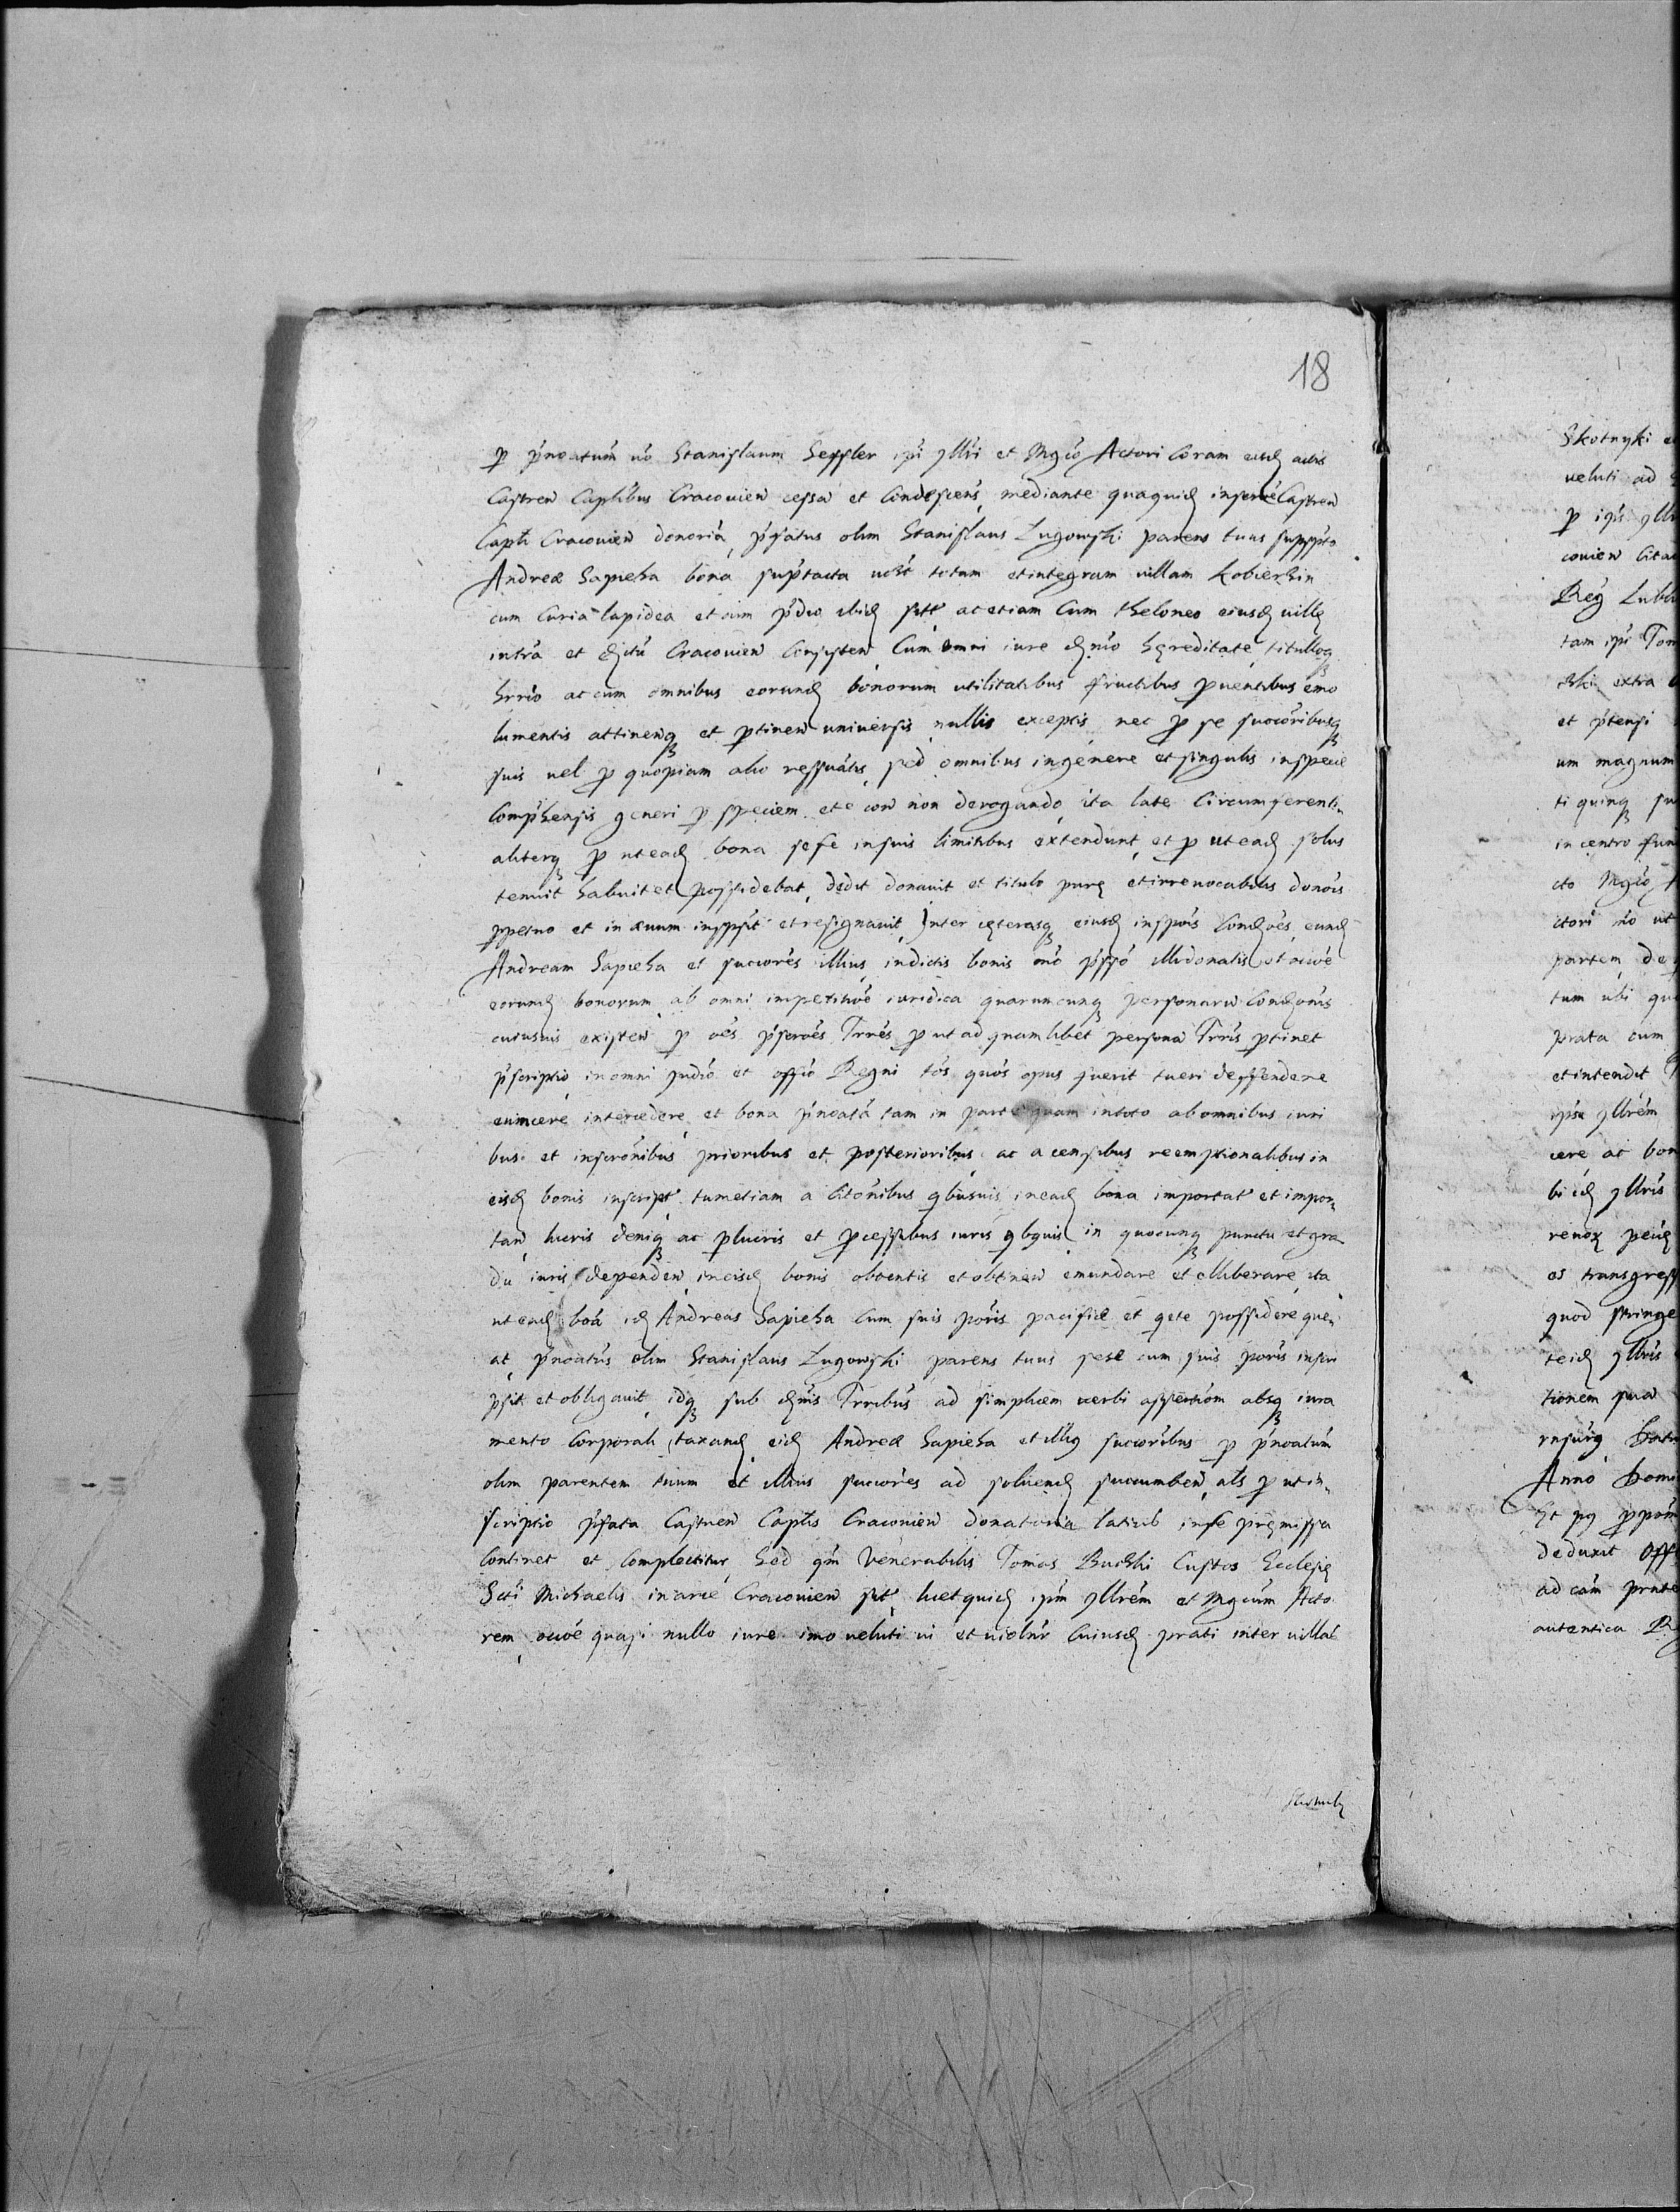 18
p pnoatum uo Stanislaum Seffler ipi yllri et Mgco Actori Coram eisd actis
Castren Captibus Cracouien cessa et Condescens, mediante quaquid inscrie Castren
Capti Cracouien donoria, pfatus olim Stanislaus Lugowski parens tuus suppto
Andreæ Sapieha bona suptacta ucht totam et integram uillam Kobierzin
cum Curia lapidea et cum pdio ibid sitt ac etiam Cum theloneo eiusd uillę
intra et Cracouien Consisten, Cum omni iure dnio hęreditate, titulloq
hrrio ac cum omnibus eorund bonorum utilitatibus fructibus puentibus emo
lumentis attinenq et ptinen uniuersis nullis exceptis nec p se succoribusq
suis uel p quopiam alio resuatis, sed omnibus in genere et singulis in specie
Comphensis generi p speciem et e con non derogando, ita late Circumferenti
aliterq p ut ead bona sese in suis limitibus extendunt, et p ut ead solus
tenuit habuit et possidebat, dedit donauit et titulo purę et irreuocabilis donois
ppetuo et in æuum inscpsit et resignauit, Inter cęterasq eiusd inscpois Condoes, eund
Andream Sapieha et succores illius in dictis bonis mo psso illi donatis et occoe
eorund bonorum ab omni impetitoe iuridica quarumcunq personaru Condonis
cuiusuis existen p oes pscroes Trres p ut ad quamlibet persona Trris ptinet
pscriptio in omni judio et offio Regni tos quos opus fuerit tueri deffendere
euincere intercedere et bona pnoata tam in parte quam in toto ab omnibus iuri
bus et inscronibus prioribus et posterioribus ac a censibus reemptionalibus in
eisd bonis inscript tum etiam a Citonibus qbusuis in ead bona importat et impor
tan lucris deniq ac plucris et pcessibus iuris qbquis in quocunq punctu et gra
du iuris dependen in eisd bonis obtentis et obtinen emundare et elliberare, ita
ut ead boa id Andreas Sapieha Cum suis poris pacifice et qete possidere que
at, pnoatus olim Stanislaus Lugowski parens tuus sese cum suis poris inscri
psit et obligauit, idq sub dnis Trribus ad simplicem uerbi assertiom absq iura
mento Corporali, taxand eid Andreæ Sapieha et illig succoribus p pnoatum
olim parentem tuum et illius succores ad soluend succumben, als p ut in
scriptio pfata Castren Captis Cracouien donatoria latius in se pręmissa
Continet et Complectitur, Sed qm Venerabilis Tomas Buchki Custos Ecclesię
Scti Michaelis in arce Cracouien sit, licet quid ipm yllrem et Mgcum Acto
rem, occoe quasi nullo iure imo ueluti ui et uiolnr Cuiusd prati inter uillas
Skotnyki
ueluti ad
p ips yllr
couien Cita
Reg Lubl
tam ipi Tom
extra
et ptensi
um magnum
ti quinq
in centro
cto Mgco
ctori uo ut
partem
tum ubi
prata cum
et intendit
ipse yllrem
cere ac bon
bi id yllris
es transgress
quod
teid yllris
tionem sua
Anno Domi
dedurit Off
ad cam
autentica